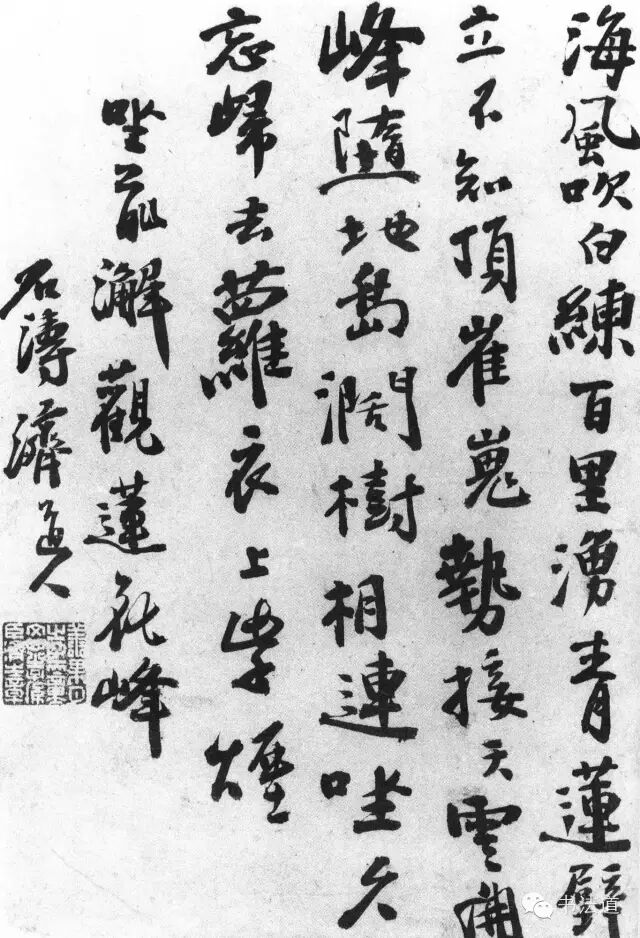 海風吹白練百里湧青蓮壁
立不知頂崔嵬勢接天雲開
峰墮地島濶樹相連坐久
忘歸去蘿衣上紫煙
坐前澥觀蓮花峰
石濤濟道人
书法道